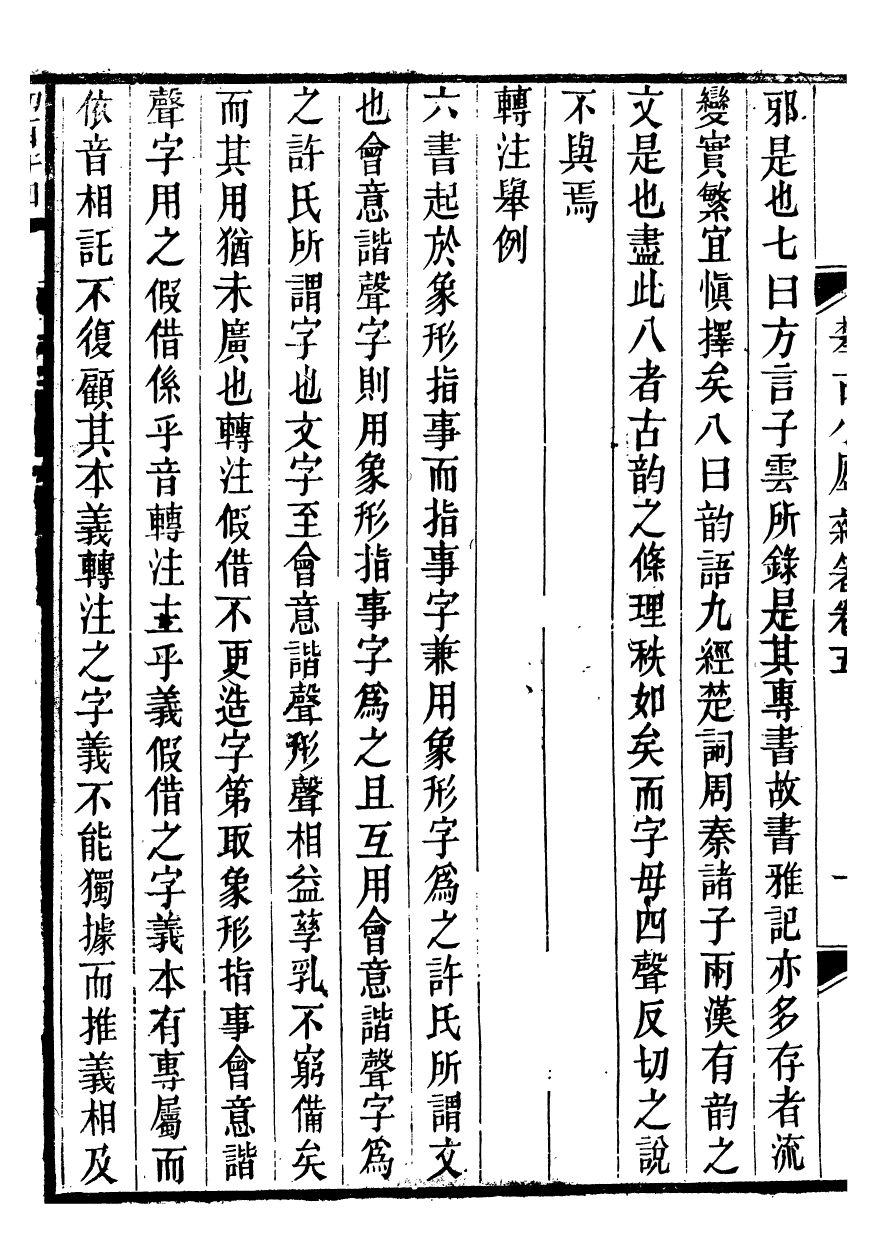 邪是也七曰方言子雲所錄是其專書故書雅記亦多存者流
變實繁宜愼擇矣八曰韵語九經楚詞周秦諸子兩漢有韵之
文是也盡此八者古韵之條理秩如矣而字毋四聲反切之說
不與焉
轉注舉例
六書起於象形指事而指事字兼用象形字爲之許氏所謂文
也會意諧聲字則用象形指事字爲之且互用會意諧聲字爲
之許氏所謂字也文字至會意諧聲形聲相益孳乳不窮備矣
而其用猶未廣也轉注假借不更造字第取象形指事會意諧
聲字用之假借係乎音轉注主乎義假借之字義本有專屬而
依音相託不復顧其本義轉注之字義不能獨據而推義相及